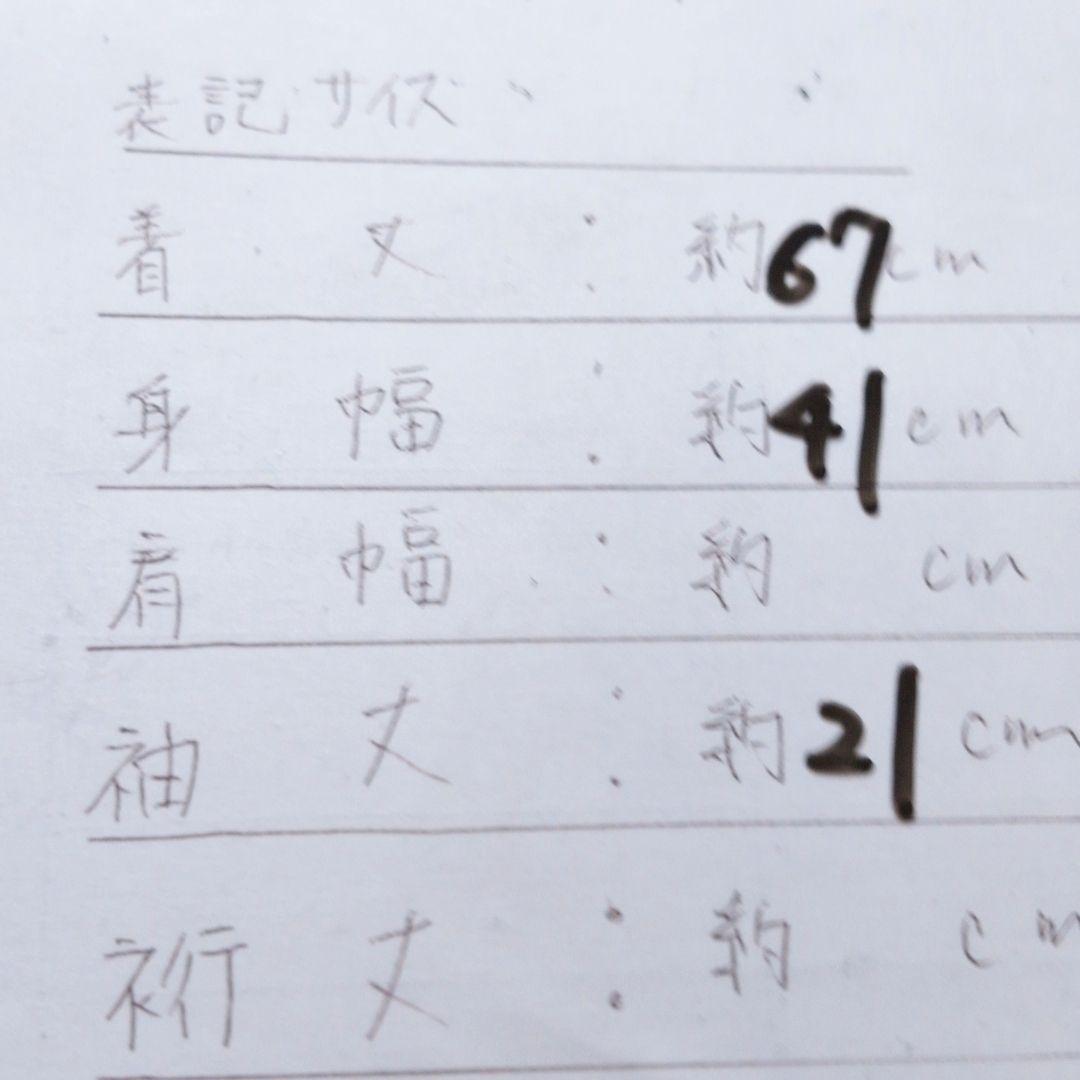 表記サイズ
着丈：約67cm
身幅：約41cm
肩幅：約 cm
袖丈：約21cm
裄丈：約 cm